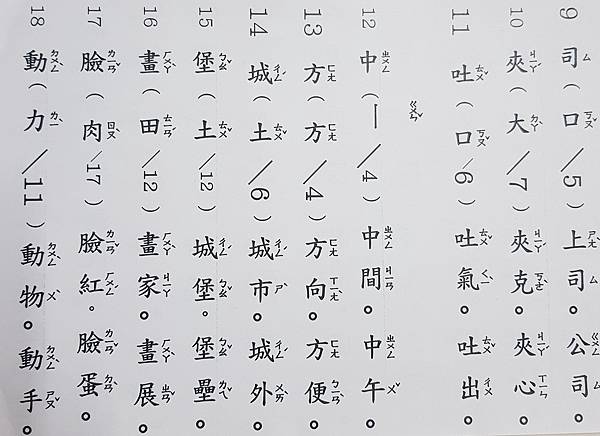 9 司（口/5）上司。公司。
10 夾（大/7）夾克。夾心。
11 吐（口/6）吐氣。吐出
ㄍㄨㄣˇ
12 中（丨/4）中間。中午。
13 方（方/4）方向。方便。
14 城（土/6）城市。城外。
15 堡（土/12）城堡。堡壘。
16 畫（田/12）畫家。畫展。
17 臉（肉/17）臉紅。臉蛋。
18 動（力/11）動物。動手。